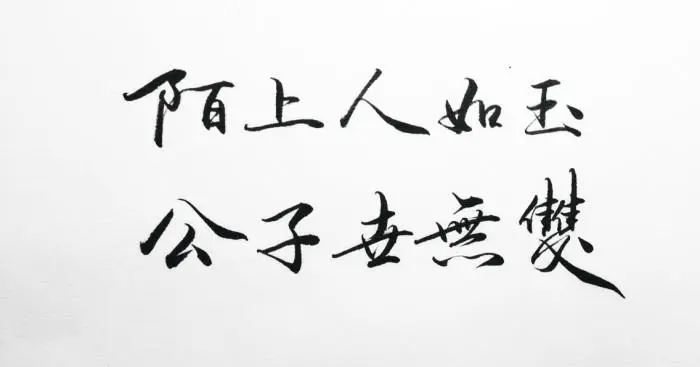 陌上人如玉
公子世無雙